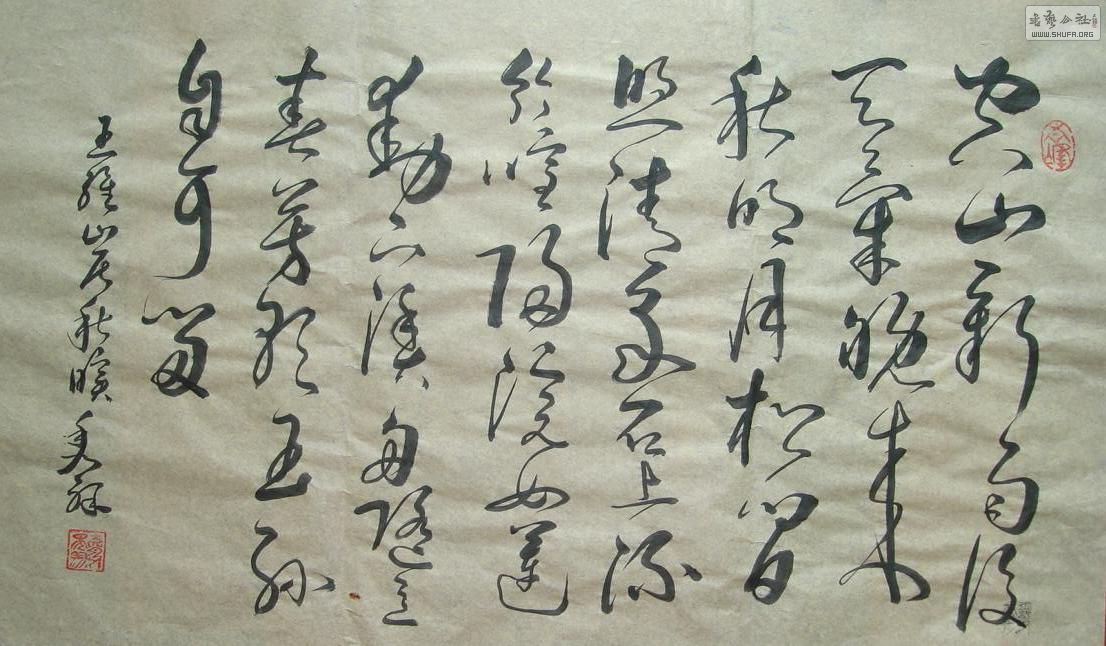 空山新雨後
天氣晚來
秋明月松間
照清泉石上流
竹喧歸浣女蓮
動下漁舟隨意
春芳歇王孫
自可留
王維山居秋暝
書藝公社
WWW.SHUFA.ORG